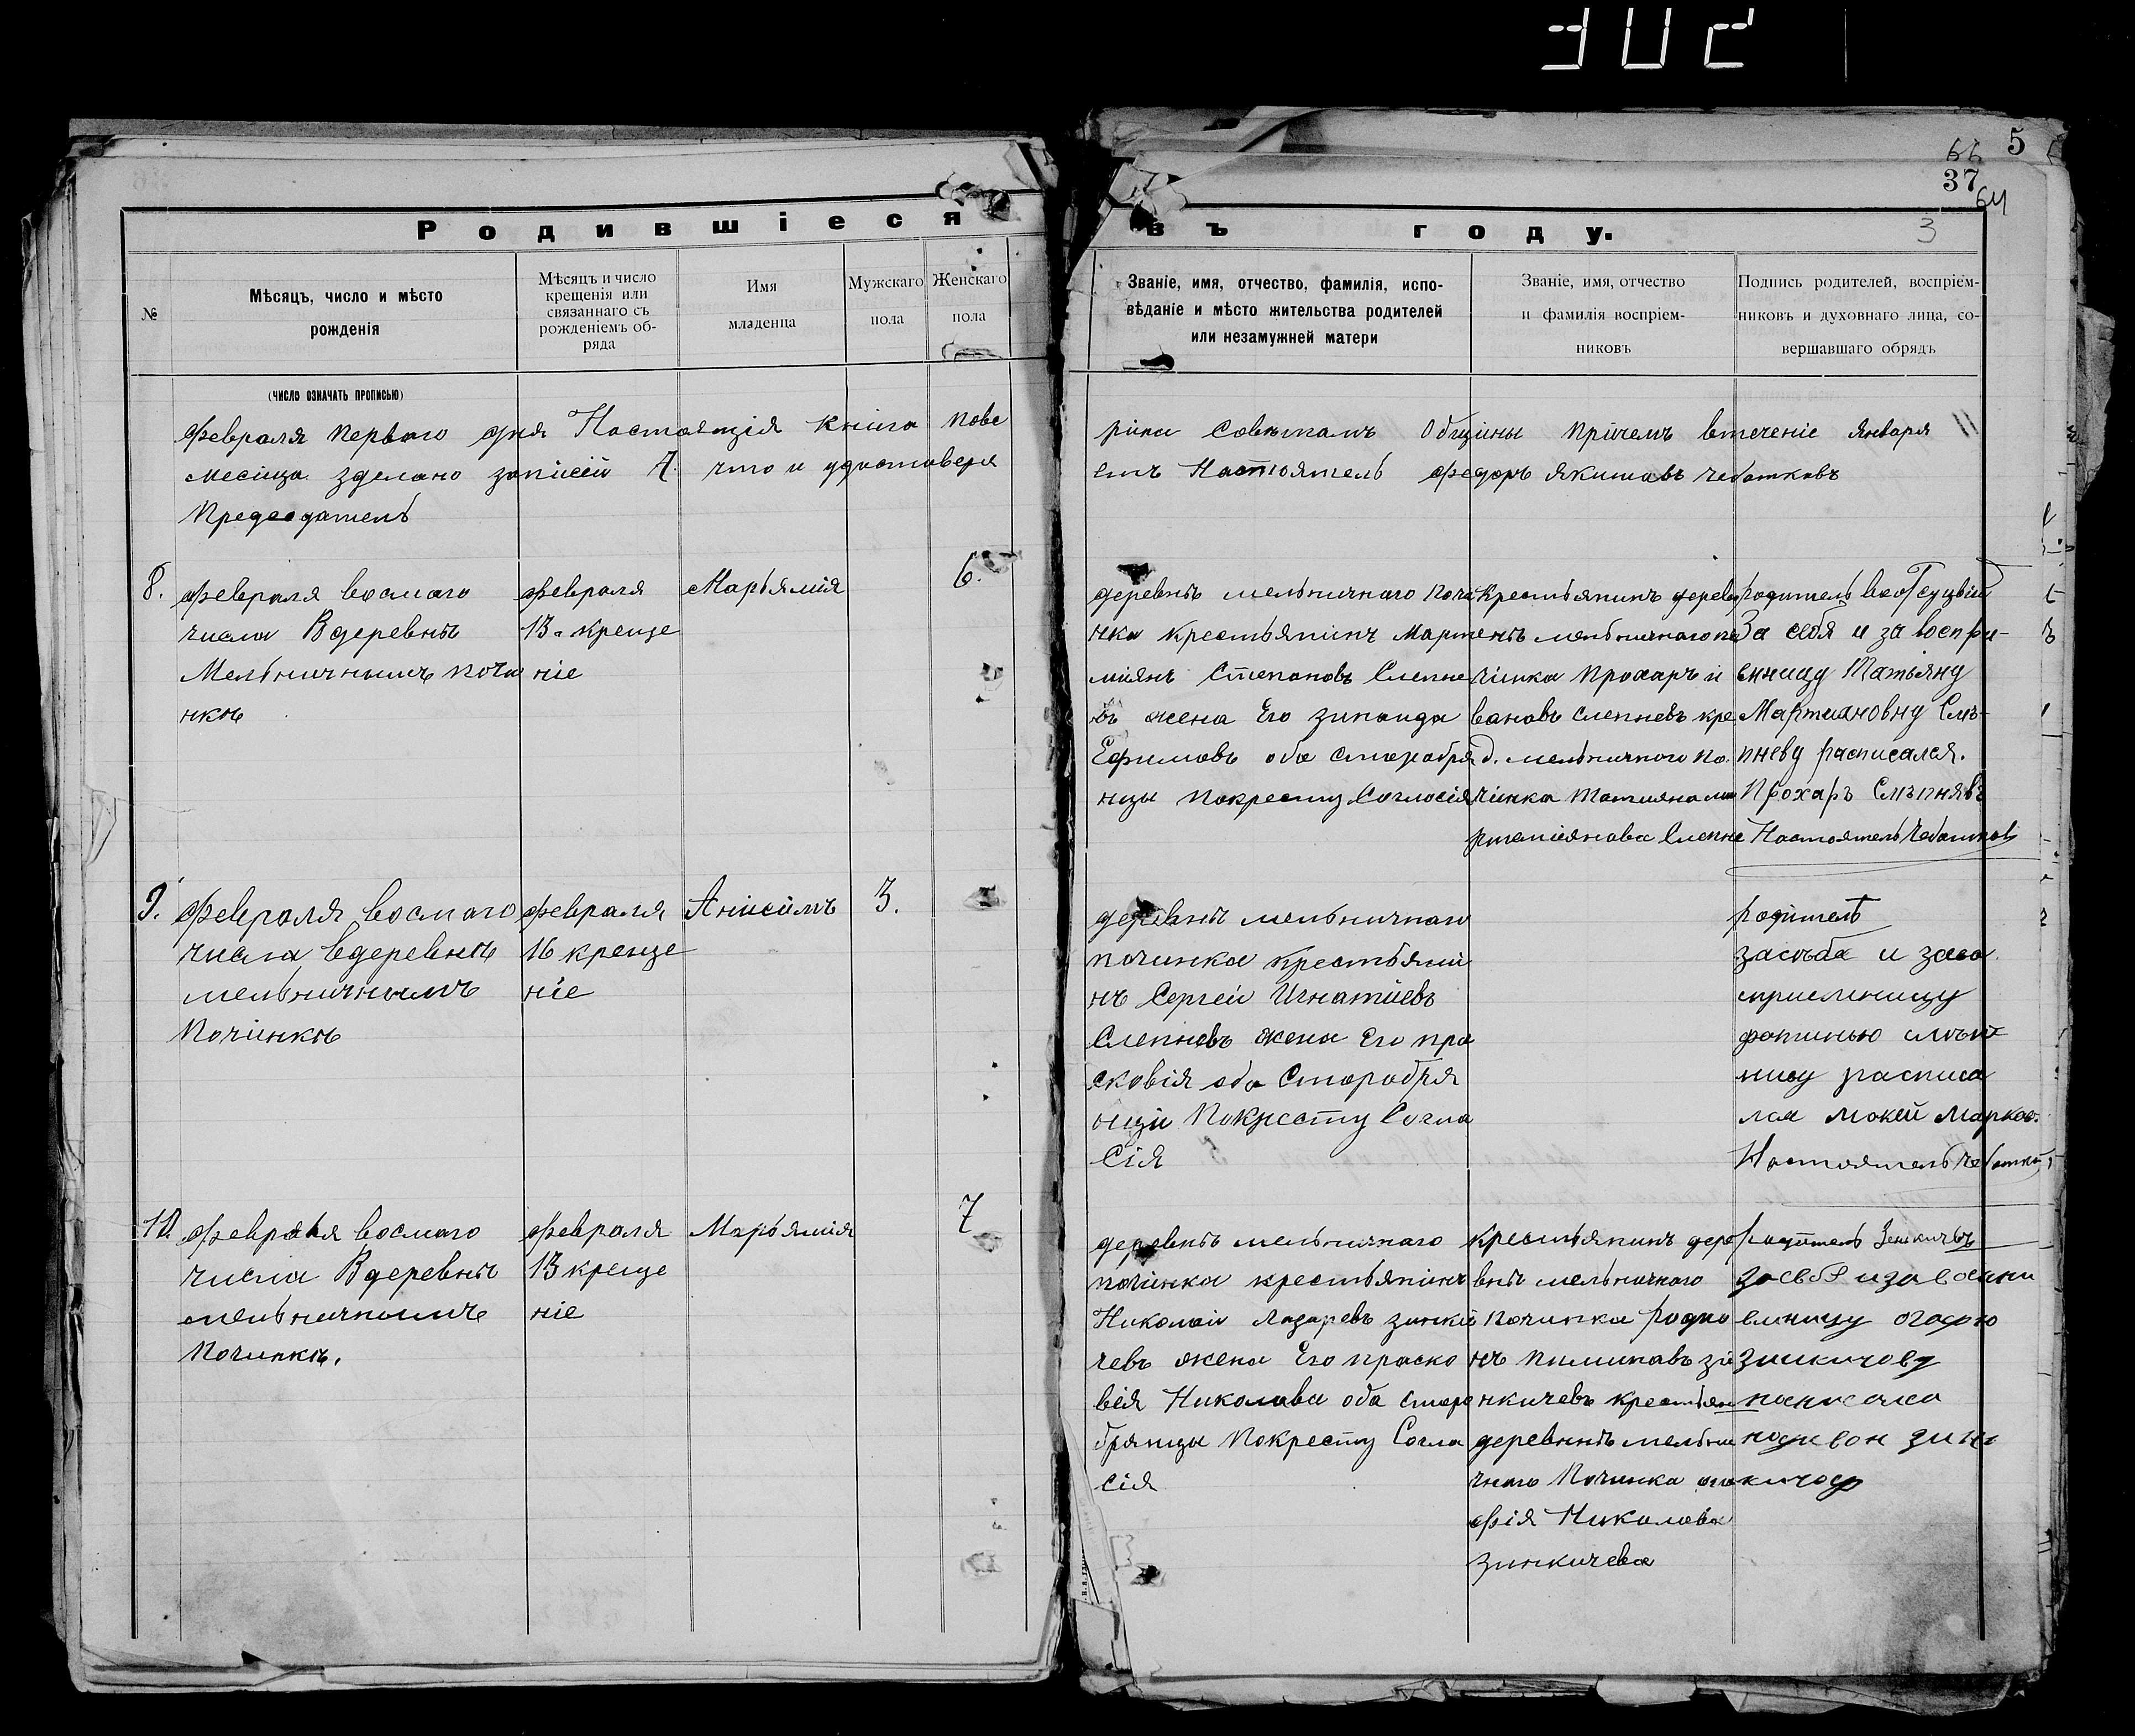 302
5
66
37
64
Родившіеся въ году.
3
№
Мѣсяцъ, число и мѣсто
рожденія
Мѣсяцъ и число
крещенія или
связаннаго съ
рожденіемъ об-
ряда
Имя
младенца
Мужскаго
пола
Женскаго
пола
Званіе, имя, отчество, фамилія, испо-
вѣданіе и мѣсто жительства родителей
или незамужней матери
Званіе, имя, отчество
и фамилія воспріем-
никовъ
Подпись родителей, воспріем-
никовъ и духовнаго лица, со-
вершавшаго обрядъ
(число означать прописью)
февраля первого дня Настоящія книга пове
ріна Советамъ Общины причемъ втеченіе января
месяца зделано записей 7. что и удостоверя
етъ Настоятель федоръ Якимовъ Чеботковъ
Председатель
8.
февраля восмаго
числа Вдеревнѣ
Мельничнымъ почи
нкѣ
февраля
13. креще
ніе
Марьямія
6.
деревнѣ мельничнаго почи
нка крестьянинъ Марте
міянъ Степановъ Слепне
въ жена Его зинаида
Ефимовъ оба старообря
нцы покресту Согласія
крестьянинъ дерев
нѣ мельничнаго по
чинка Прохаръ и
вановъ слепневъ кре
д. мельничного по.
чинка Татияна ма
ртеміянова Слепне
родитель
За себя и за воспри-
емницу Татьяну
Мартиановну Слѣ-
пневу расписался.
Прохаръ Слѣпнявъ
Настоятель Чеботков
9.
февраля восмаго
числа вдеревнѣ
мельничнымъ
Починкѣ
февраля
16 креще
ніе
Анисимъ
3.
деревнѣ мельничнаго
починка крестьяни
нъ Сергей Игнатіевъ
Слепневъ жена Его пра
сковія оба Старобря
нцы Покресту Согла
Сія
родитель
засѣба и заво
сприемницу
фотинью слѣп
ниву расписа
лся Мокей Марков.
Настоятель Чеботков
10.
февраля восмаго
числа Вдеревнѣ
мельничнымъ
Починкѣ.
февраля
13 креще
ніе
Марьямія
7
деревнѣ мельничнаго
починка крестьянинъ
Николай Лазаревъ зинки
чевъ жена Его праско
вія Николава оба старо
брянцы Покресту Согла
сія
крестьянинъ дере
внѣ мельничного
починка родио
нъ пиминавъ зи
нкичевъ крестьян
деревннѣ мельни
чного Починка ага
фія Николава
зинкичева
родитель
засебя изавоспи
емницу огофю
зинкичову
росписалса
родивон зин
кичоф